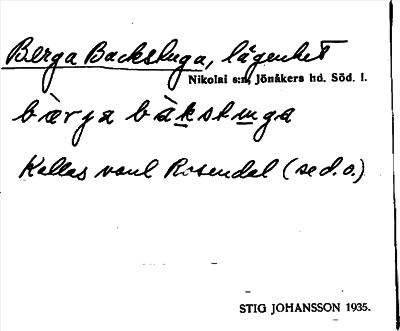 Berga Backstuga, lägenhet
Nikolai s:n, Jönåkers hd. Söd. l.
bàrja bàkstuga
Kallas vanl Rosendal (se d.o.)
STIG JOHANSSON 1935.